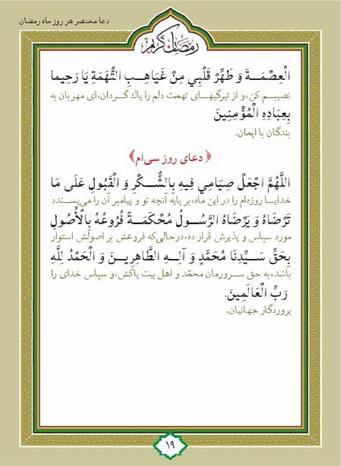 دعا مختصر هر روز ماه رمضان
رمضان کریم
الْعِصْمَةَ وَ طَهِّرْ قَلْبِي مِنْ غَيَاهِبِ التُّهَمَةِ يَا رَحِيما
نصیبم کن، و از تیرگیهای تهمت دلم را پاک گردان، ای مهربان به
بِعِبَادِهِ الْمُؤْمِنِينَ
بندگان با ایمان.
﴿دعای روز سی‌ام﴾
اللَّهُمَّ اجْعَلْ صِيَامِي فِيهِ بِالشُّكْرِ وَ الْقَبُولِ عَلَى مَا
خدایا روزه‌ام را در این ماه، بر پایه آنچه تو و پیامبر آن را می‌پسندد
تَرْضَاهُ وَ يَرْضَاهُ الرَّسُولُ مُحْكَمَةً فُرُوعُهُ بِالْأُصُولِ
مورد سپاس و پذیرش قرار ده، درحالی‌که فروعش بر اصولش استوار
بِحَقِّ سَيِّدِنَا مُحَمَّدٍ وَ آلِهِ الطَّاهِرِينَ وَ الْحَمْدُ لِلَّهِ
باشد، به حق سرورمان محمّد و اهل بیت پاکش، و سپاس خدای را
رَبِّ الْعَالَمِينَ.
پروردگار جهانیان.
۱۹